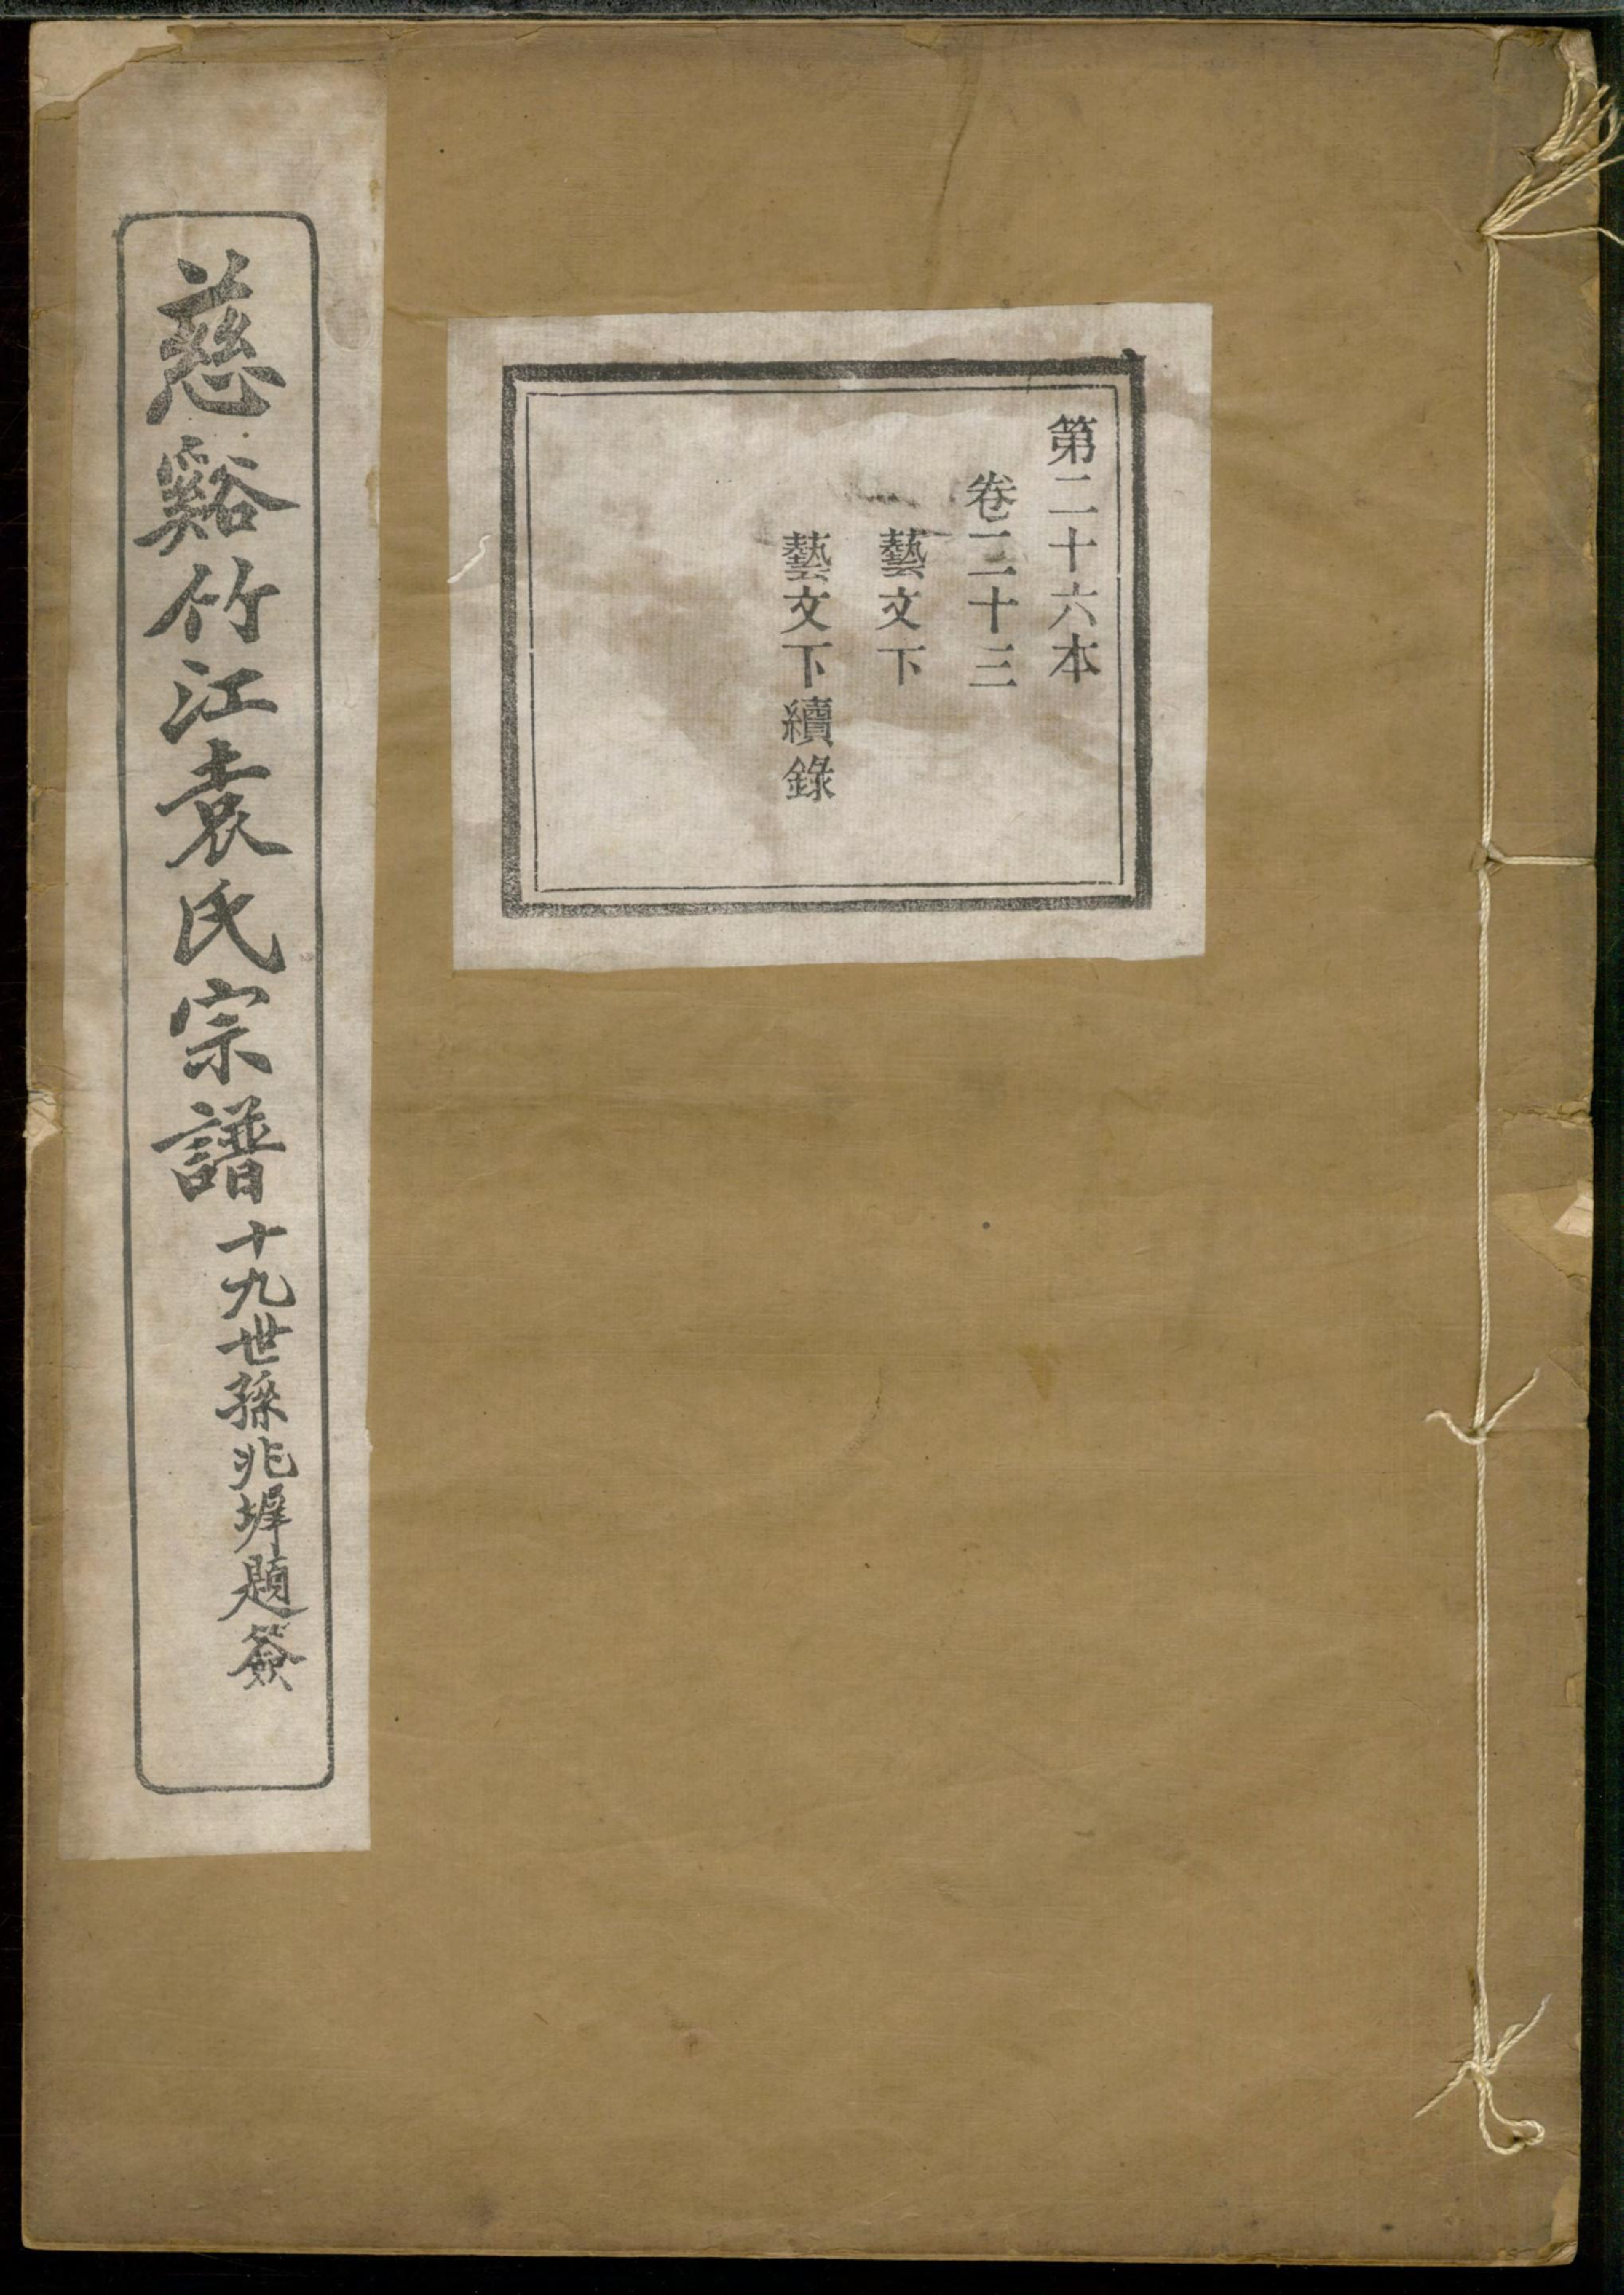 第二十六本
卷二十三
藝文下
藝文下續錄
慈谿竹江袁氏宗譜
十九世孫兆墀題簽